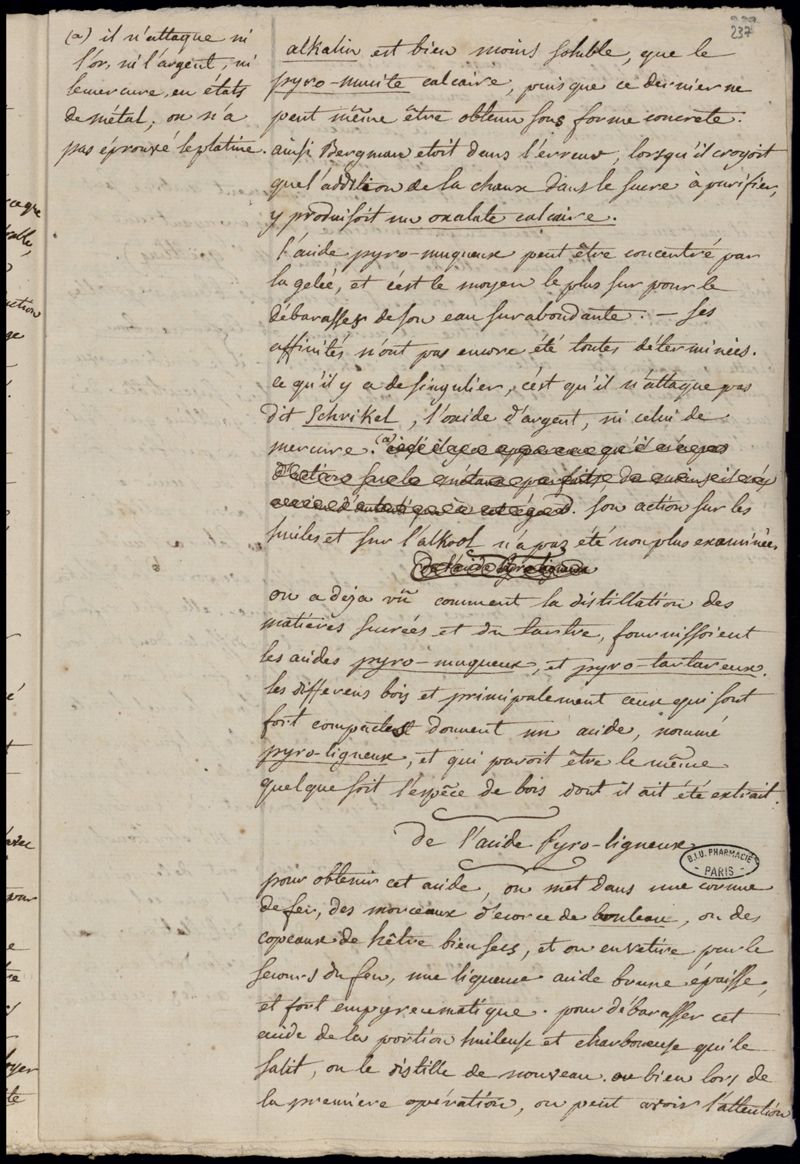 237
(a) il n'attaque ni
l'or, ni l'argent, ni
le mercure, en états
de métal; on n'a
pas éprouvé le platine.
alkalin est bien moins soluble, que le
pyro-mucite calcaire, puisque ce dernier ne
peut même être obtenu sous forme concrete.
ainsi Bergman etoit dans l'erreur, lorsqu'il croyoit
que l'addition de la chaux dans le sucre à purifier,
y produisoit un oxalate calcaire.
l'acide pyro-muqueux peut être concentré par
la gelée, et c'est le moyen le plus sur pour le
débarasser de son eau surabondante. — Ses
affinités n'ont pas encore été toutes déterminées.
ce qu'il y a de singulier, c'est qu'il n'attaque pas
dit Schrikel, l'oxide d'argent, ni celui de
mercure. (a)
son action sur les
huiles et sur l'alkool n'a pas été non plus examinée.
on a deja vû comment la distillation des
matières sucrées et du tartre, fournissoient
les acides pyro-muqueux, et pyro-tartareux.
les differens bois et principalement ceux qui sont
fort compactes donnent un acide, nommé
pyro-ligneux, et qui paroit être le même
quelque soit l'espèce de bois dont il ait été extrait.
De l'acide Pyro-ligneux
B.I.U. PHARMACIE
- PARIS -
pour obtenir cet acide, on met dans une cornue
de fer, des morceaux d'ecorce de bouleau, ou des
copeaux de hêtre bien secs, et on en retire par le
secours du feu, une liqueur acide brune épaisse,
et fort empyreumatique. pour débarasser cet
acide de la portion huileuse et charboneuse qui le
salit, on le distille de nouveau. ou bien lors de
la premiere opération, on peut avoir l'attention